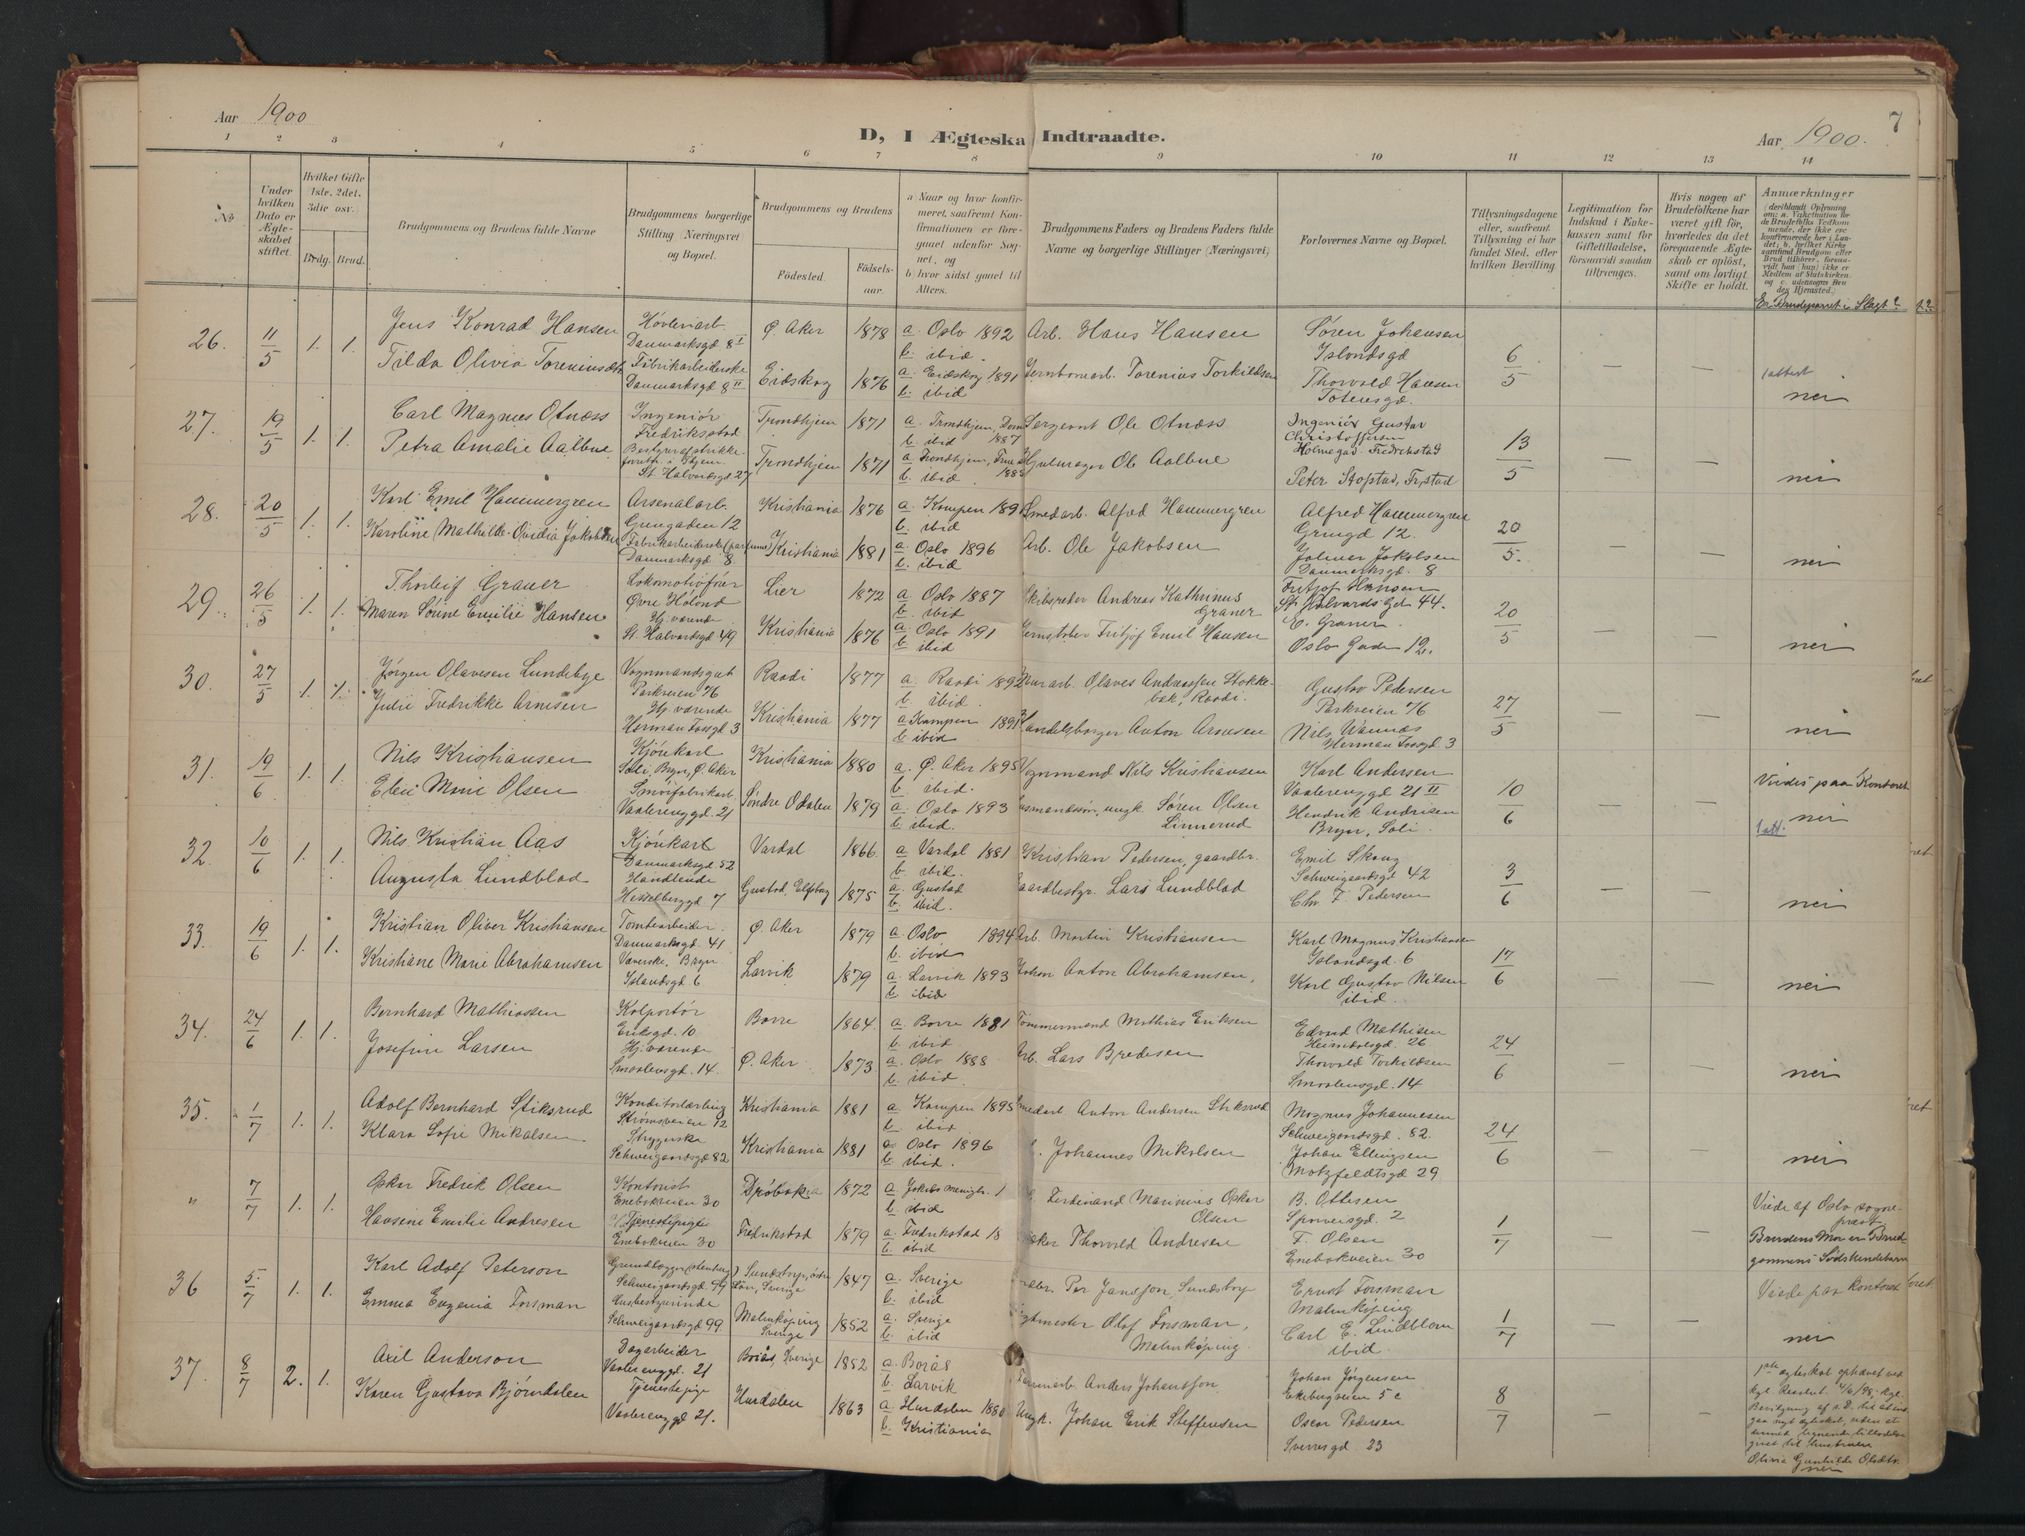 Aar 1900
D, I Ægteska Indtraadte.
Aar 1900.
7
1 2 3 4 5 6 7 8 9 10 11 12 13 14
No
Under hvilken Dato er Ægteskabet stiftet.
Hvilket Gifte 1ste, 2det, 3die osv.
Brdg. Brud.
Brudgommens og Brudens fulde Navne
Brudgommens borgerlige Stilling (Næringsvei og Bopæl.
Brudgommens og Brudens
Fødested.
Fødselsaar.
a) Naar og hvor konfirmeret, saafremt Konfirmationen er foregaaet udenfor Sognet, og
b) hvor sidst gaaet til Alters.
Brudgommens Faders og Brudens Faders fulde Navne og borgerlige Stillinger (Næringsvei)
Forlovernes Navne og Bopæl.
Tillysningsdagene eller, saafremt Tillysning ei har fundet Sted, efter hvilken Bevilling
Legitimation for Indskud i Enkekassen samt for Giftetilladelse, forsaavidt saadan tiltrænges.
Hvis nogen af Brudefolkene har været gift før, hvorledes da det foregaaende Ægteskab er opløst, samt om lovligt Skifte er holdt.
Anmærkninger
Er Brudeparret i Slægt?
26. 11/5 1. 1. Jens Konrad Hansen
Høvleriarb. Danmarksgd 8 I
Ø. Aker 1878 a. Oslo 1892 b. ibid.
Arb. Hans Hansen
Søren Johansen Islandsgd
6/5 — —
Tilda Olivia Toreniusdtr
Fabrikarbeiderske Danmarksgd 8 II
Eidskog 1876 a. Eidskog 1891 b. ibid
Jerntomarb. Torenius Torkildsen
Thorvald Hansen Totensgd.
1 attest
nei
27. 19/5 1. 1. Carl Magnus Otnæss
Ingeniør Fredriksstad
Trondhjem 1871 a. Trondhjem, Dom 1887 b. ibid
Sergeant Ole Otnæss
Ingeniør Gustav Christoffersen Holmegad. Fredrikstad
13/5 — —
Petra Amalie Aalbue
St. Halvardsgd 27
Trondhjem 1871 a. Trondhjem, b. ibid.
Hjulmager Ole Aalbue
Peter Stopstad, Fr,stad
nei
28. 20/5 1. 1. Karl Emil Hammergren
Arsenalarb. Grungaden 12
Kristiania 1876 a. Kampen 189 b. ibid
Smedarb. Alfred Hammergren
Alfred Hammergren Grungd 12.
20/5. — —
Karoline Mathilde Ovidia Jakobsen
Fabrikarbeiderske Danmarksgd 8
Kristiania 1881 a. Oslo 1896 b. ibid
Arb. Ole Jakobsen
Jakobsen Danmarksgd. 8
nei
29. 26/5 1. 1. Thorleif Graner
Lokomotivfører Øvre Høland
Lier 1872 a. Oslo 1887 b. ibid
Skibsreder Andreas Kathinus Graner
Fritjof Hansen St. Halvards Gd 44.
20/5 — —
Maren Sørine Emilie Hansen
Hj. værende St. Halvardsgd 49
Kristiania 1876 a. Oslo 1891 b. ibid
Jernstøber Fritjof Emil Hansen
E. Graner. Oslo Gaden 12.
nei
30. 27/5 1. 1. Jørgen Olavesen Lundebye
Vognmandsgut Parkveien 76
Raadi 1877 a. Raadi 1892 b. ibid.
Olaves Andreassen Stokkebæk, Raadi.
Gustav Pedersen Parkveien 76
27/5 — —
Julie Fredrikke Arnesen
Hj. værende Herman Fossgd 3
Kristiania 1877 a Kampen 1891 b ibid
Handelsborger Anton Arnesen
Nils Wannæs Herman Fossgd 3
nei
31. 19/6 1. 1. Nils Kristiansen
Kjørekarl Soli, Bryn, Ø. Aker
Kristiania 1880 a. Ø. Aker 1895 b. ibid.
Vognmand Nils Kristiansen
Karl Andersen Vaalerenggd 21 II
10/6 — —
Viedes paa Kontoret
Elen Marie Olsen
Smørfabrikarb Vaalerenggd. 21
Søndre Odalen 1879 a. Oslo 1893 b. ibid.
Husmandssøn, ungk. Søren Olsen Linnerud
Hendrik Andrisen Bryn, Soli.
nei
32. 10/6 1. 1. Nils Kristian Aas
Kjørekarl Danmarksgd. 52
Vardal 1866. a Vardal 1881 b. ibid.
Kristian Pedersen, gaardbr.
Emil Skaug Schweigaardsgd 42
3/6 — —
1 att.
Augusta Lundblad
Handlende Hesselberggd 7
Gustad, Elfsborg 1875 a. Gustad b. ibid.
Gaardbestyr. Lars Lundblad
Chr. F. Pedersen
nei
33. 19/6 1. 1. Kristian Oliver Kristiansen
Tomtearbeider Danmarksgd. 41
Ø. Aker 1879 a. Oslo 1894 b. ibid
Arb. Martin Kristiansen
Karl Magnus Kristiansen Islandsgd. 6
17/6 — —
Kristiane Marie Abrahamsen
Væverske, Bryn. Islandsgd 6
Larvik 1879 a. Larvik 1893 b. ibid
Johan Anton Abrahamsen,
Karl Gustav Nilsen ibid.
nei
34. 24/6 1. 1. Bernhard Mathiassen
Kolportør Eriksgd. 10
Borre 1864. a. Borre 1881 b. ibid
Tømmermand Mathias Eriksen
Edvard Mathisen Heimdalsgd. 26
24/6 — —
Josefine Larsen
Hj. værende Smaalensgd. 14.
Ø. Aker 1873 a. Oslo 1888 b. ibid.
Arb. Lars Bredesen
Thorvald Torkildsen Smaalensgd. 14
nei
35. 1/7 1. 1. Adolf Bernhard Stiksrud
Konditorlærling Strømsveien 12
Kristiania 1881 a. Kampen 1895 b. ibid
Smedarb. Anton Andersen Stiksrud
Magnus Johannesen Schweigaardsgd. 82.
24/6 — —
Klara Sofie Mikalsen
Strygerske Schweigaardsgd 82
Kristiania 1881 a. Oslo 1896 b. ibid.
Johannes Mikalsen
Johan Ellingsen Motzfeldtsgd 29
nei
" 7/7 1. 1. Oskar Fredrik Olsen
Kontorist Enebakveien 30
Drøbak 1872 a. Jakobs menigh. 1 b. ibid
Ferdinand Marinius Oskar Olsen
B. Ottesen Sporveisgd. 2
1/7 — —
Viede af Oslo sogneprest
Hansine Emilie Andresen
Tjenestepige Enebakveien 30
Fredrikstad 1879 a. Fredrikstad 18 b. ibid
Thorvald Andresen
F. Olsen Enebakveien 30
Brudens Mor er Brudgommens Sødskendebarn
36 5/7 1. 1. Karl Adolf Peterson
Grundlægger Schweigaardsgd. 99
Sverige 1847 a. Sverige b. ibid
Per Jansson, Sundstorp
Ernst Forsman Malmköping
1/7 — —
Viede paa kontoret
Emma Eugenia Forsman
Husbestyrinde Schweigaardsgd 99.
Malmköping Sverige 1852 a. Sverige b. ibid
Olof Forsman, Malmköping.
Carl E. Lindblom ibid.
nei
37. 8/7 2. 1. Axel Anderson
Dagarbeider Vaalerenggd. 21
Borås, Sverige 1852 a. Borås b. Larvik
Anders Johansson
Johan Jørgensen Ekebergveien 5 c
8/7 — —
1ste ægteskab ophævet ved kgl. Resolut. 4/6/98, kgl. Bevilgning af s. D. til at indgaa nyt ægteskab, uden at
Karen Gustava Bjørndalen
Tjenestepige Vaalerenggd 21.
Hurdalen 1863 a. Hurdalen 1880 b. Kristiania
Ungk. Johan Erik Steffensen
Oscar Pedersen Sverresgd 23
Olivia Gunhilde Olsdtr.
nei